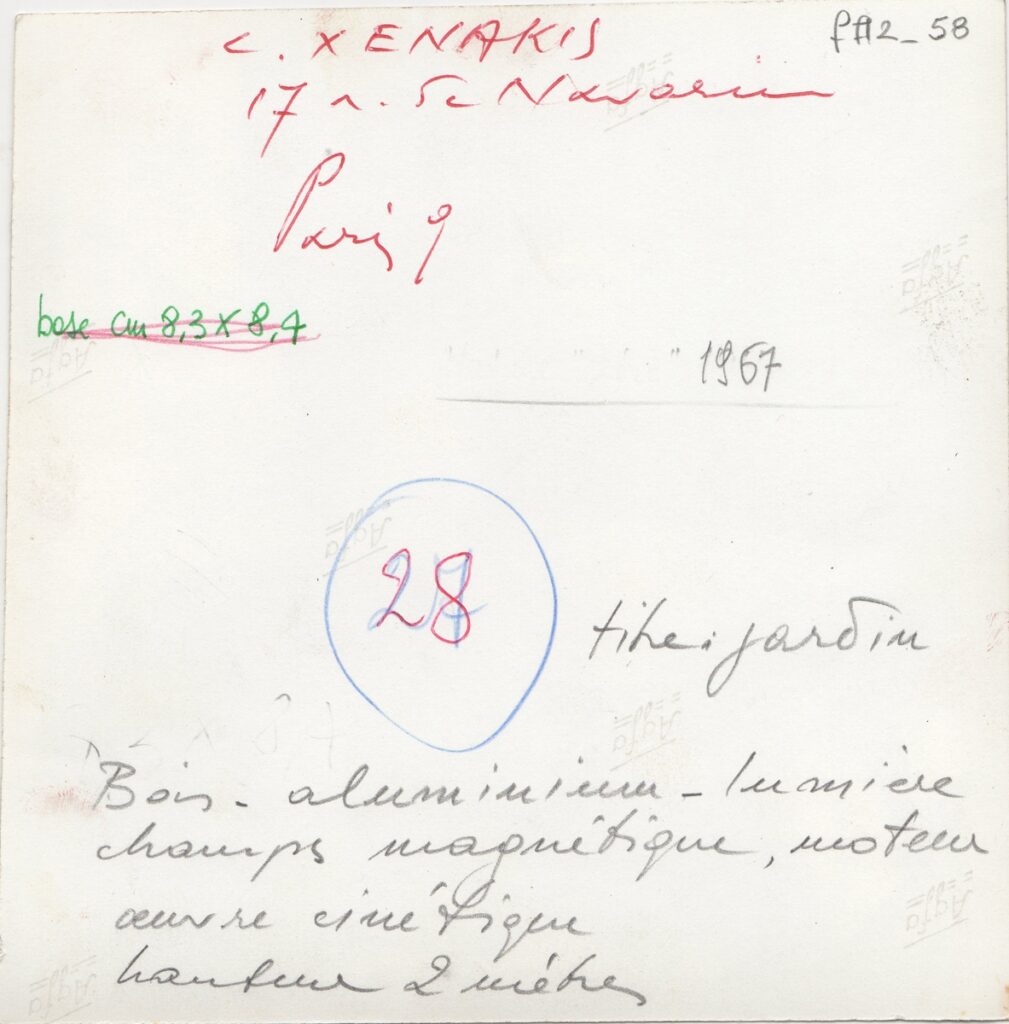 c. XENAKIS
fA2_58
17 r. de Navarin
Paris 9
base cm 8,3 x 8,4
" 1967
28
titre: jardin
Bois - aluminium - lumière
champs magnétique, moteur
œuvre cinétique
hauteur 2 mètres
Agfa
Agfa
Agfa
Agfa
Agfa
Agfa
Agfa